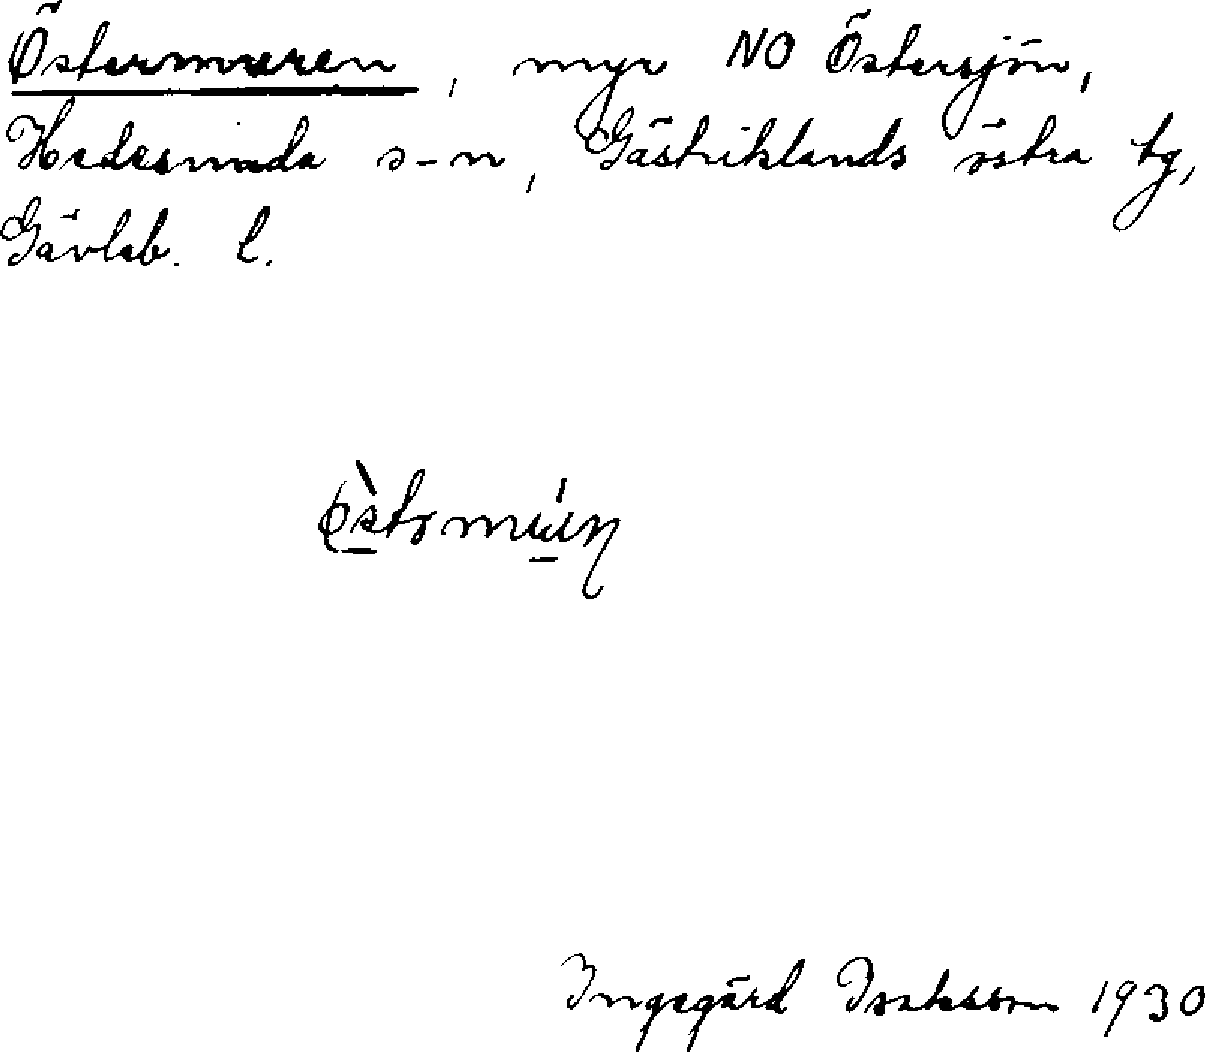 Östermuren, myr NO Östersjön,
Hedesunda s-n, Gästriklands östra tg,
Gävleb. l.
Ingegärd Isaksson 1930